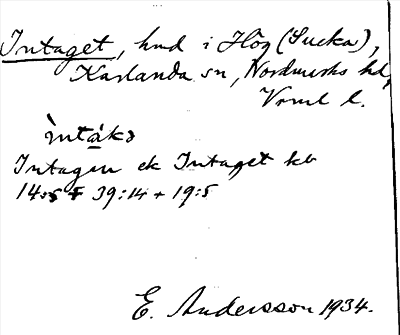 Intaget, hmd i Hög (Sucka),
Karlanda sn, Nordmarks hd,
Värml l.
ìntákə
Intagen ek Intaget kb
14:5 + 39:14 + 19:5
E. Andersson 1934.